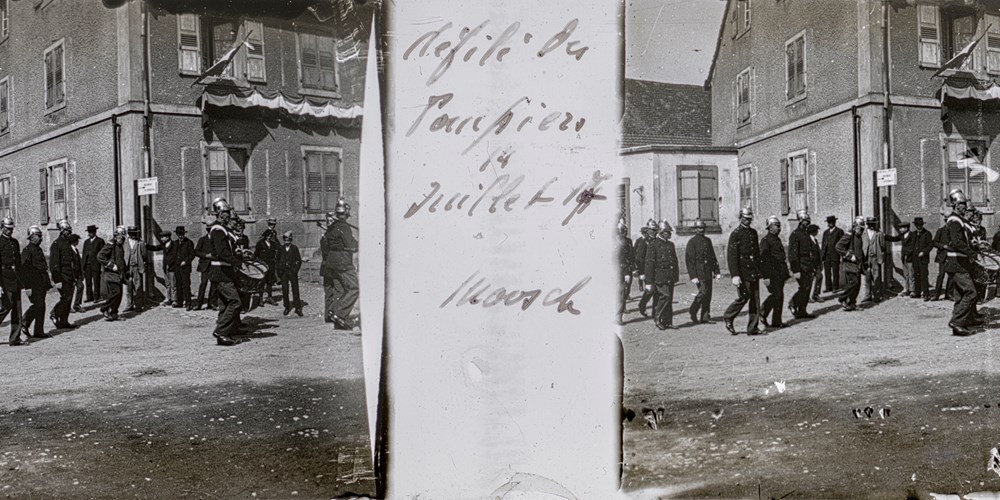 défilé du
Pompiers
14
Juillet 17
Moosch